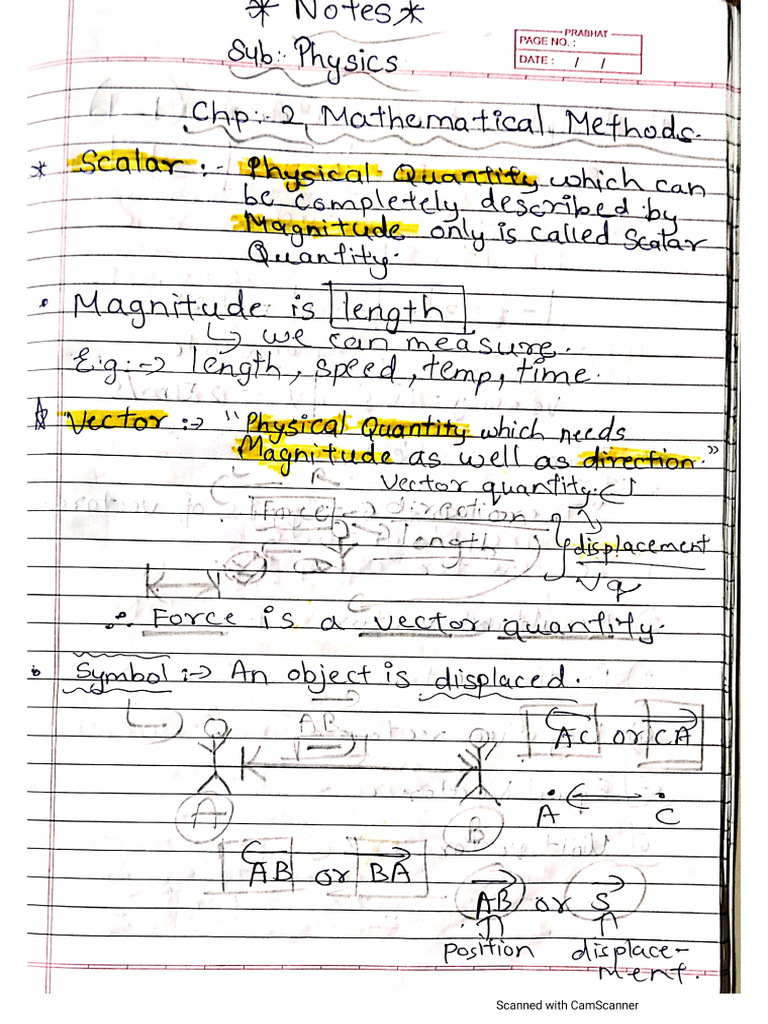 * Notes *
Sub:- Physics
PRABHAT
PAGE NO. :
DATE : / /
Chp:- 2 Mathematical Methods.
* Scalar :- Physical Quantity which can
be completely described by
Magnitude only is called Scalar
Quantity.
• Magnitude is length
↳ we can measure.
E.g:-> length, speed, temp, time.
☆ Vector :-> "Physical Quantity which needs
Magnitude as well as direction."
Vector quantity.
Force -> direction
length
displacement
Vq
∴ Force is a vector quantity.
• Symbol :-> An object is displaced.
AB
AC or CA
A B
A C
AB or BA
AB or S
position displace-
ment.
Scanned with CamScanner